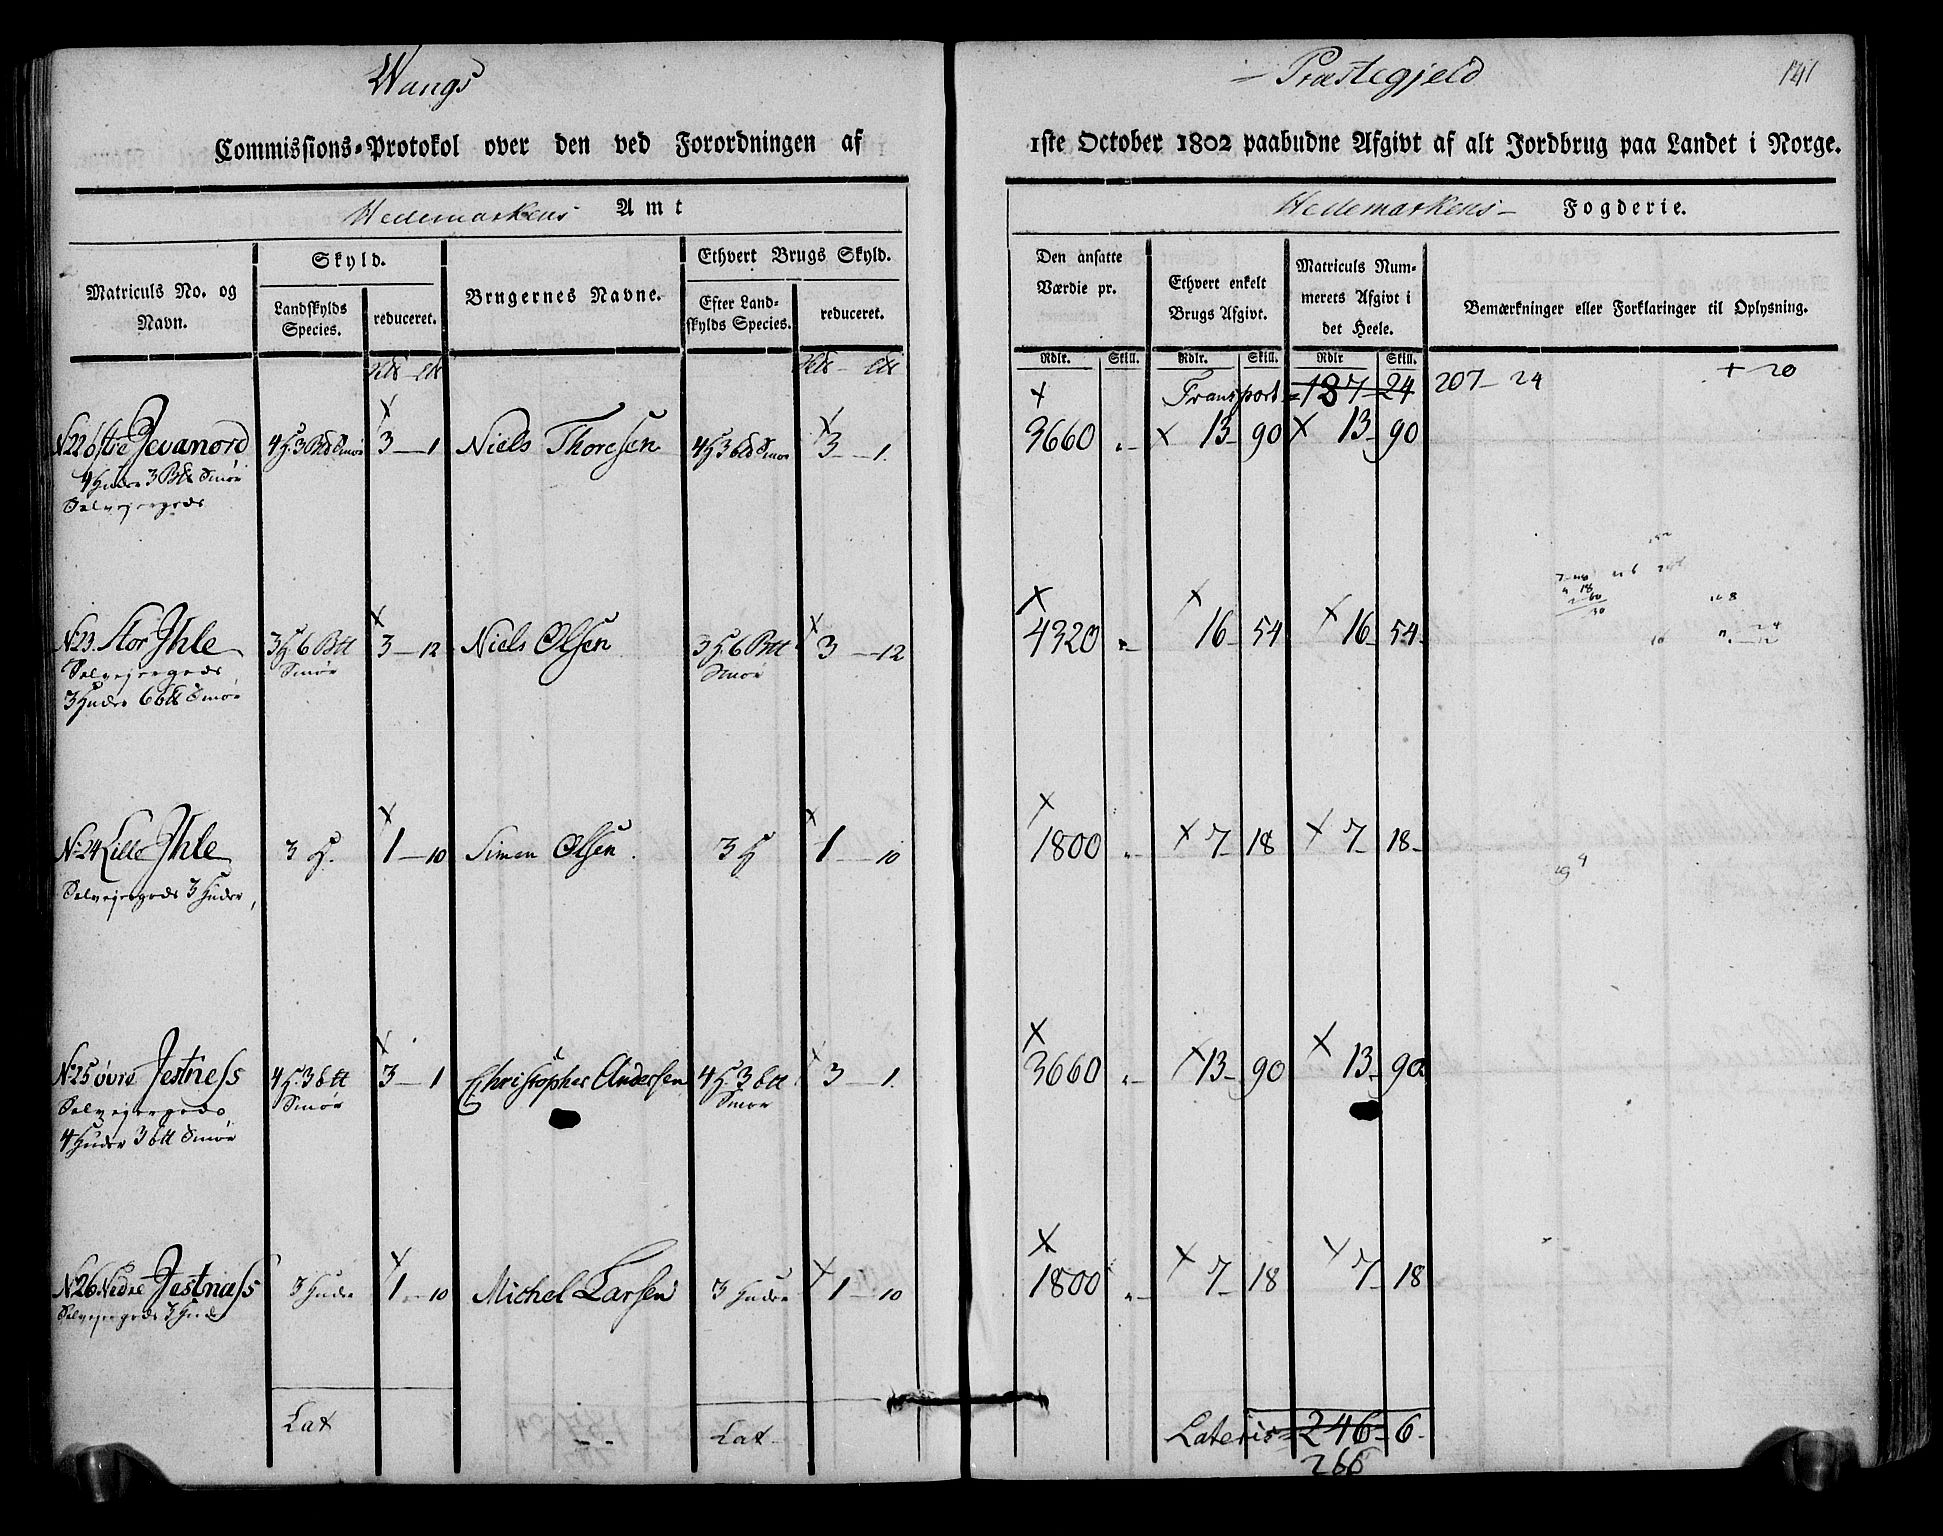 Wangs
Præstegjeld
141
Commissions-Protokol over den ved Forordningen af
1ste October 1802 paabudne Afgivt af alt Jordbrug paa Landet i Norge.
Hedemarkens Amt
Hedemarkens Fogderie.
Matriculs No. og Navn.
Skyld.
Landskylds Species.
reduceret.
Brugernes Navne.
Ethvert Brugs Skyld.
Efter Landskylds Species.
reduceret.
Den ansatte Værdie pr.
Ethvert enkelt Brugs Afgivt.
Matriculs Nummerets Afgivt i det Heele.
Bemærkninger eller Forklaringer til Oplysning.
Rdlr. Skill. Rdlr. Skill. Rdlr Skill.
Transport 187 - 24 207 - 24 + 20
N22 østre 4 H. 3 Btt Smør 3 - 1 Niels Thoresen 4 H 3 btt Smør 3 - 1. 3660 " 13 - 90 13 - 90
4 Huder 3 Btt Smør
Selvejergods
N23. Stor Ihle 3 H 6 Btt Smør 3 - 12 Niels Olsen 3 H 6 Btt Smør 3 - 12 4320 " 16 - 54 16 - 54
Selvejergods
3 Huder 6 btt Smør
N24 Lille Ihle 3 H. 1 - 10 Simen Olsen 3 H 1 - 10 1800 " 7 - 18 7 - 18
Selvejergods 3 Huder
N25 øvre Jestness 4 H. 3 btt Smør 3 - 1 Christopher Andersen 4 H 3 btt Smør 3 - 1. 3660 " 13 - 90 13 - 90
Selvejergods
4 Huder 3 btt Smør
N26. Nedre Jestness 3 Huder 1 - 10 Michel Larsen 3 Huder 1 - 10 1800 " 7 - 18 7 - 18
Selvejergods 3 Hud
Lat
Lat
Lateris 246 - 6
266